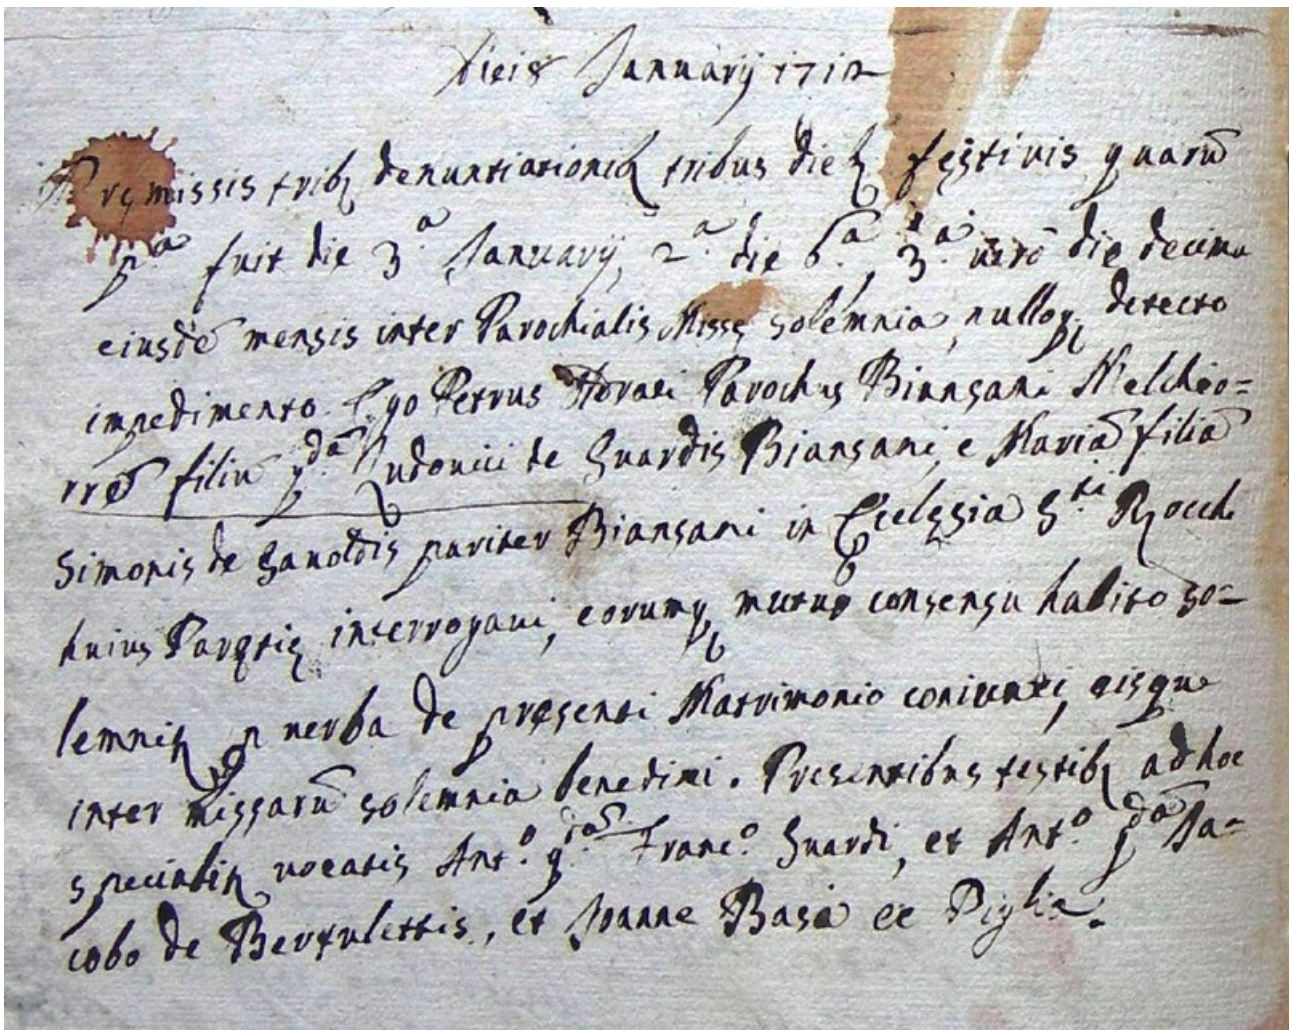 Die 18 Januarij 1712
Premissis tribq denuntiationibq tribus diebq festivis quarū
p.a fuit die 3.a Januarij, 2.a die 6.a, 3.a uerò die decima
eiusdē mensis inter Parochialis Missę solemnia, nulloq detecto
impedimento. Ego Petrus Parochus Bianzani Melchio=
rrē filiū qdā Ludouici de Guardis Bianzani, e Mariā filiā
Simonis de Zanoldis pariter Bianzani in Ecclęsia S.ti Rocchi
huius interrogaui, eorumq mutuo consensu habito so=
lemnitr p uerba de pręsenti Matrimonio coniunxi, eisque
inter Missarū solemnia benedixi. Presentibus testibq ad hoc
specialitr uocatis Ant.o qdā Franc.o Guardi, et Ant.o qdā Ja=
cobo de Bertulettis, et Joanne Basa